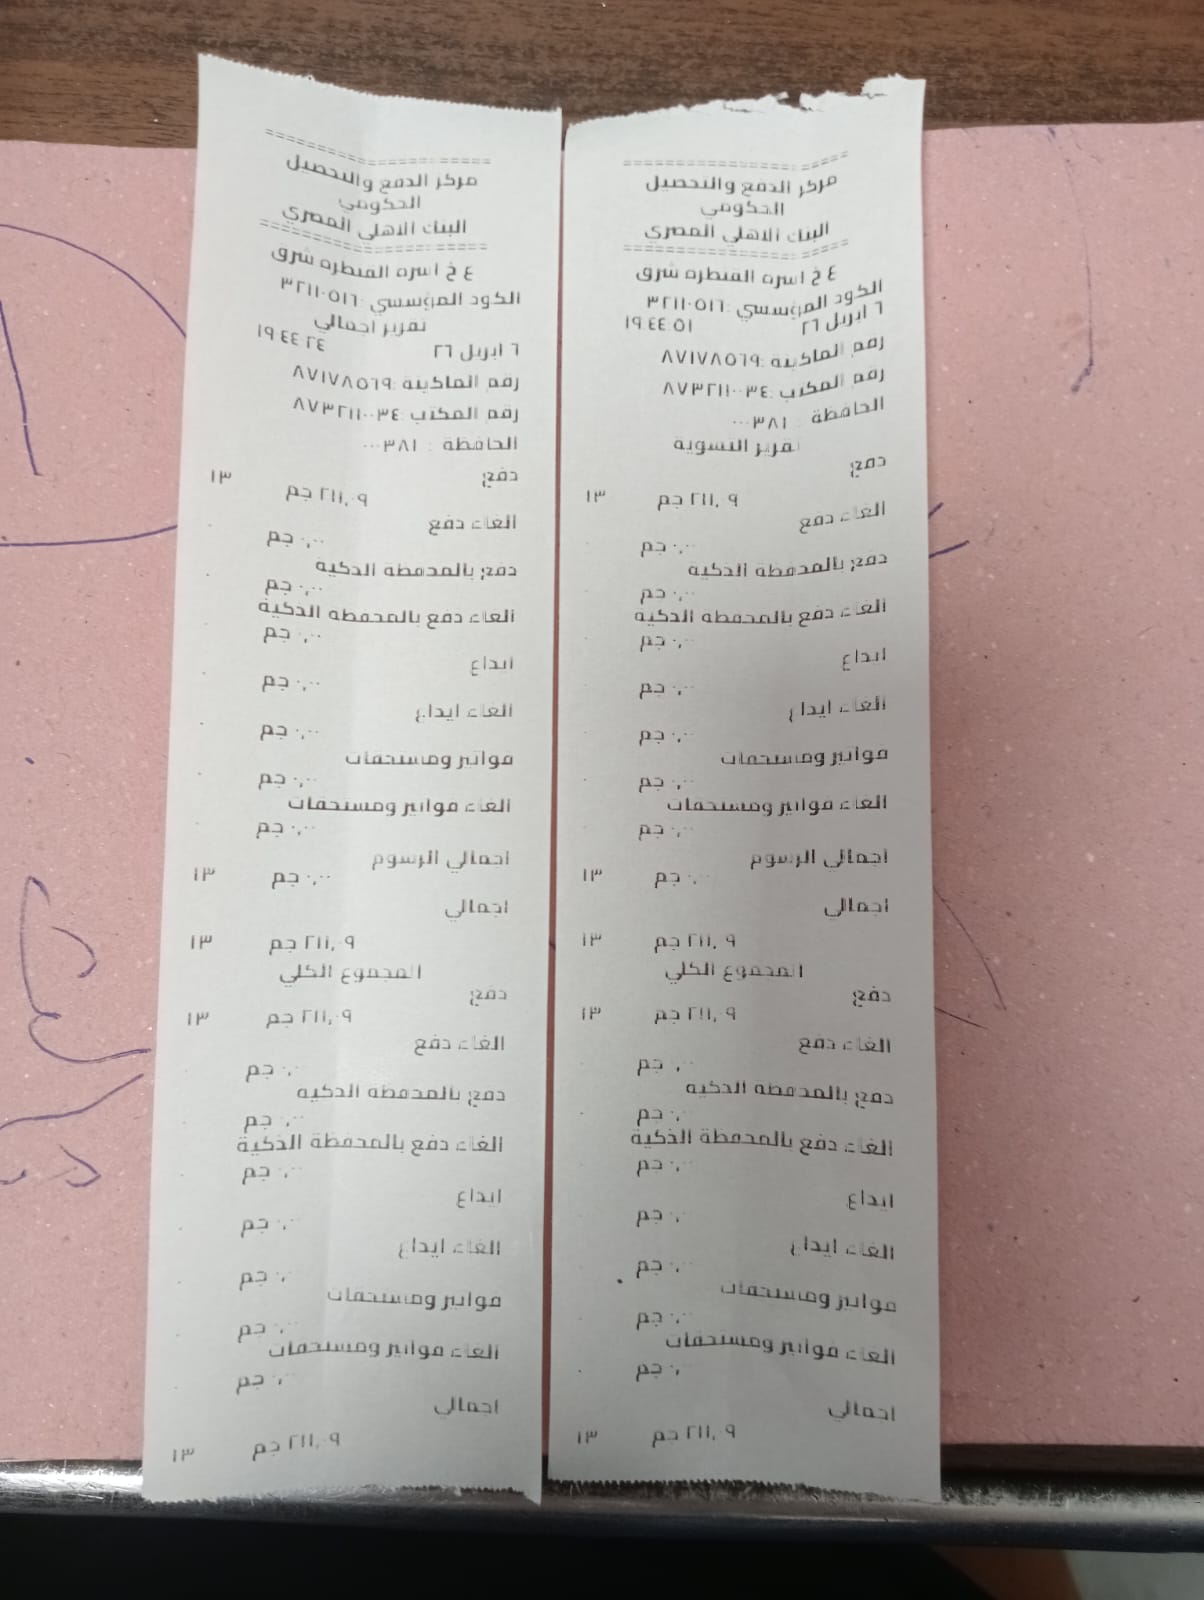 ========================
مركز الدفع والتحصيل
الحكومي
البنك الاهلي المصري
========================
ع خ اسره القنطره شرق
الكود المؤسسي :٣٢١١٠٥١٦
٦ ابريل ٢٦ ١٩:٤٤:٥١
رقم الماكينة :٨٧١٧٨٥٦٩
رقم المكتب :٨٧٣٢١١٠٠٣٤
الحافظة : ٠٠٠٣٨١
تقرير التسوية
دفع
٢١١,٠٩ جم ١٣
الغاء دفع
٠,٠٠ جم ٠
دفع بالمحفظة الذكية
٠,٠٠ جم ٠
الغاء دفع بالمحفظه الذكية
٠,٠٠ جم ٠
ايداع
٠,٠٠ جم ٠
الغاء ايداع
٠,٠٠ جم ٠
فواتير ومستحقات
٠,٠٠ جم ٠
الغاء فواتير ومستحقات
٠,٠٠ جم ٠
اجمالي الرسوم
٠,٠٠ جم ١٣
اجمالي
٢١١,٠٩ جم ١٣
المجموع الكلي
دفع
٢١١,٠٩ جم ١٣
الغاء دفع
٠,٠٠ جم ٠
دفع بالمحفظه الذكيه
٠,٠٠ جم ٠
الغاء دفع بالمحفظة الذكية
٠,٠٠ جم ٠
ايداع
٠,٠٠ جم ٠
الغاء ايداع
٠,٠٠ جم ٠
فواتير ومستحقات
٠,٠٠ جم ٠
الغاء فواتير ومستحقات
٠,٠٠ جم ٠
اجمالي
٢١١,٠٩ جم ١٣
========================
مركز الدفع والتحصيل
الحكومي
البنك الاهلي المصري
========================
ع خ اسره القنطره شرق
الكود المؤسسي :٣٢١١٠٥١٦
تقرير اجمالي
٦ ابريل ٢٦ ١٩:٤٤:٢٤
رقم الماكينة :٨٧١٧٨٥٦٩
رقم المكتب :٨٧٣٢١١٠٠٣٤
الحافظة : ٠٠٠٣٨١
دفع
٢١١,٠٩ جم ١٣
الغاء دفع
٠,٠٠ جم ٠
دفع بالمحفظة الذكية
٠,٠٠ جم ٠
الغاء دفع بالمحفظه الذكية
٠,٠٠ جم ٠
ايداع
٠,٠٠ جم ٠
الغاء ايداع
٠,٠٠ جم ٠
فواتير ومستحقات
٠,٠٠ جم ٠
الغاء فواتير ومستحقات
٠,٠٠ جم ٠
اجمالي الرسوم
٠,٠٠ جم ١٣
اجمالي
٢١١,٠٩ جم ١٣
المجموع الكلي
دفع
٢١١,٠٩ جم ١٣
الغاء دفع
٠,٠٠ جم ٠
دفع بالمحفظه الذكيه
٠,٠٠ جم ٠
الغاء دفع بالمحفظة الذكية
٠,٠٠ جم ٠
ايداع
٠,٠٠ جم ٠
الغاء ايداع
٠,٠٠ جم ٠
فواتير ومستحقات
٠,٠٠ جم ٠
الغاء فواتير ومستحقات
٠,٠٠ جم ٠
اجمالي
٢١١,٠٩ جم ١٣